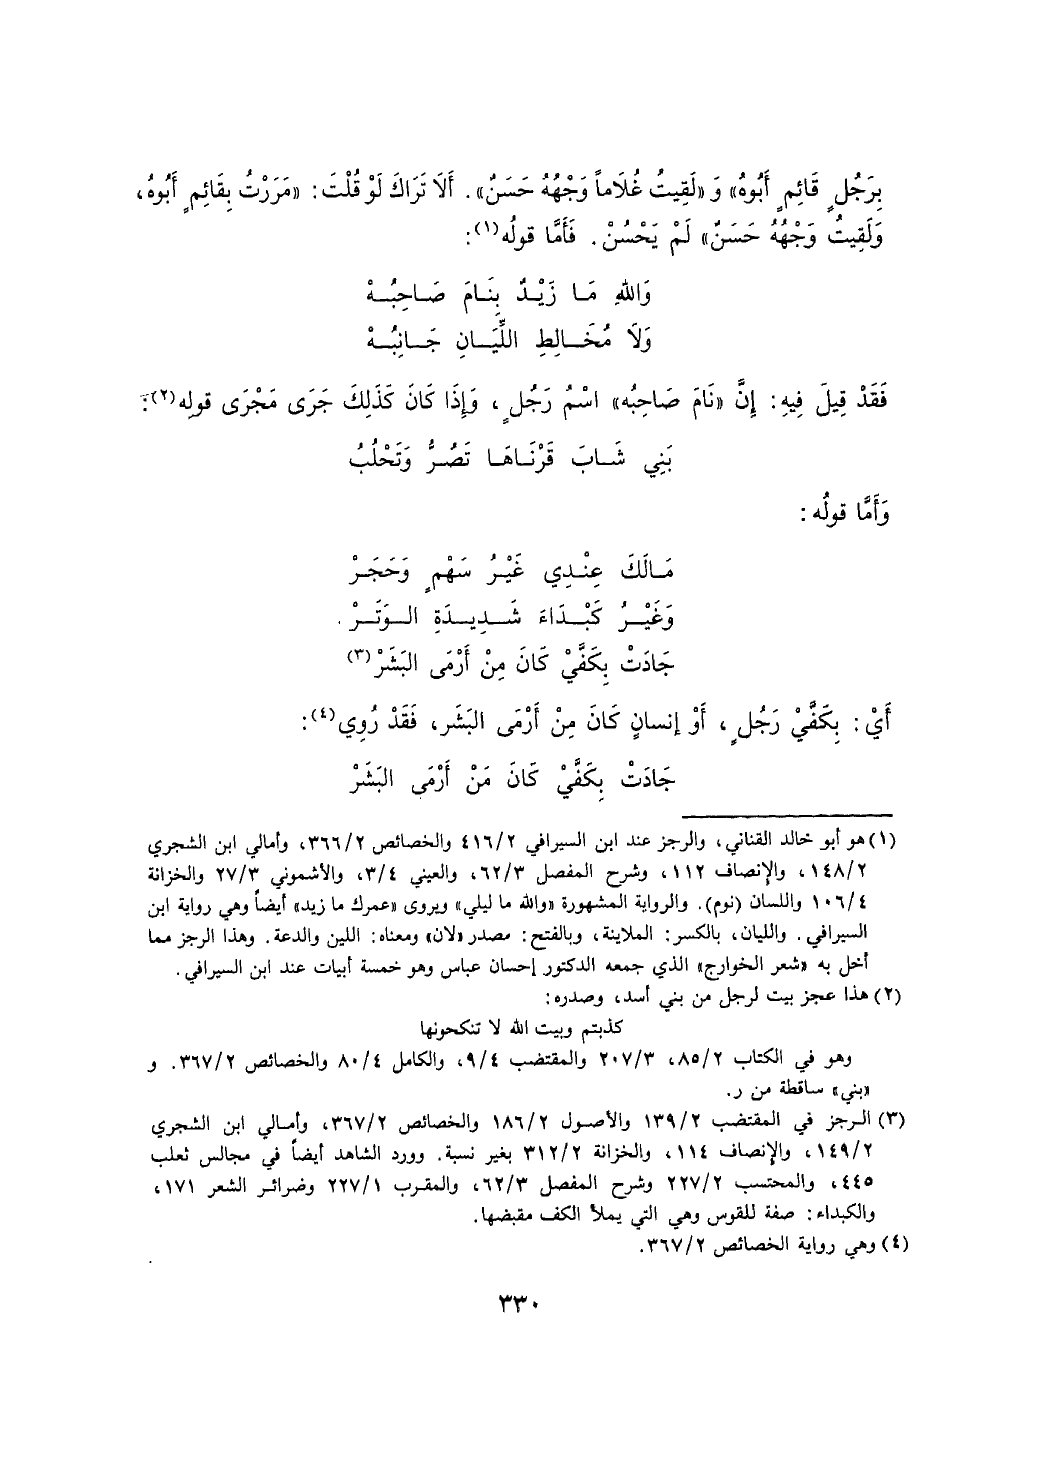 بِرَجُلٍ قَائِمٍ أَبُوهُ» وَ «لَقِيتُ غُلَاماً وَجْهُهُ حَسَنٌ». أَلَا تَرَاكَ لَوْ قُلْتَ: «مَرَرْتُ بِقَائِمٍ أَبُوهُ،
وَلَقِيتُ وَجْهُهُ حَسَنٌ» لَمْ يَحْسُنْ. فَأَمَّا قولُه(١):
وَاللهِ مَـا زَيْـدٌ بِنَـامَ صَـاحِبُـهْ
وَلَا مُخَـالِطِ اللَّيَـانِ جَـانِبُـهْ
فَقَدْ قِيلَ فِيهِ: إِنَّ «نَامَ صَاحِبُه» اسْمُ رَجُلٍ، وَإِذَا كَانَ كَذَلِكَ جَرَى مَجْرَى قولِه(٢):
بَنِي شَـابَ قَرْنَـاهَـا تَصُـرُّ وَتَحْلُبُ
وَأَمَّا قولُه:
مَـالَكَ عِنْـدِي غَيْـرُ سَهْمٍ وَحَجَـرْ
وَغَيْـرُ كَبْـدَاءَ شَـدِيـدَةِ الـوَتَـرْ.
جَادَتْ بِكَفَّيْ كَانَ مِنْ أَرْمَى البَشَرْ(٣)
أَيْ: بِكَفَّيْ رَجُلٍ، أَوْ إنسانٍ كَانَ مِنْ أَرْمَى البَشَر، فَقَدْ رُوِي(٤):
جَادَتْ بِكَفَّيْ كَانَ مَنْ أَرْمَى البَشَرْ
(١) هو أبو خالد القناني، والرجز عند ابن السيرافي ٤١٦/٢ والخصائص ٣٦٦/٢، وأمالي ابن الشجري
١٤٨/٢، والإنصاف ١١٢، وشرح المفصل ٦٢/٣، والعيني ٣/٤، والأشموني ٢٧/٣ والخزانة
١٠٦/٤ واللسان (نوم). والرواية المشهورة «والله ما ليلي» ويروى «عمرك ما زيد» أيضاً وهي رواية ابن
السيرافي. والليان، بالكسر: الملاينة، وبالفتح: مصدر «لان» ومعناه: اللين والدعة. وهذا الرجز مما
أخل به «شعر الخوارج» الذي جمعه الدكتور إحسان عباس وهو خمسة أبيات عند ابن السيرافي.
(٢) هذا عجز بيت لرجل من بني أسد، وصدره:
كذبتم وبيت الله لا تنكحونها
وهو في الكتاب ٨٥/٢، ٢٠٧/٣ والمقتضب ٩/٤، والكامل ٨٠/٤ والخصائص ٣٦٧/٢. و
«بني» ساقطة من ر.
(٣) الـرجز في المقتضب ١٣٩/٢ والأصـول ١٨٦/٢ والخصائص ٣٦٧/٢، وأمـالي ابن الشجري
١٤٩/٢، والإنصاف ١١٤، والخزانة ٣١٢/٢ بغير نسبة. وورد الشاهد أيضاً في مجالس ثعلب
٤٤٥، والمحتسب ٢٢٧/٢ وشرح المفصل ٦٢/٣، والمقرب ٢٢٧/١ وضرائـر الشعر ١٧١،
والكبداء: صفة للقوس وهي التي يملأ الكف مقبضها.
(٤) وهي رواية الخصائص ٣٦٧/٢.
٣٣٠